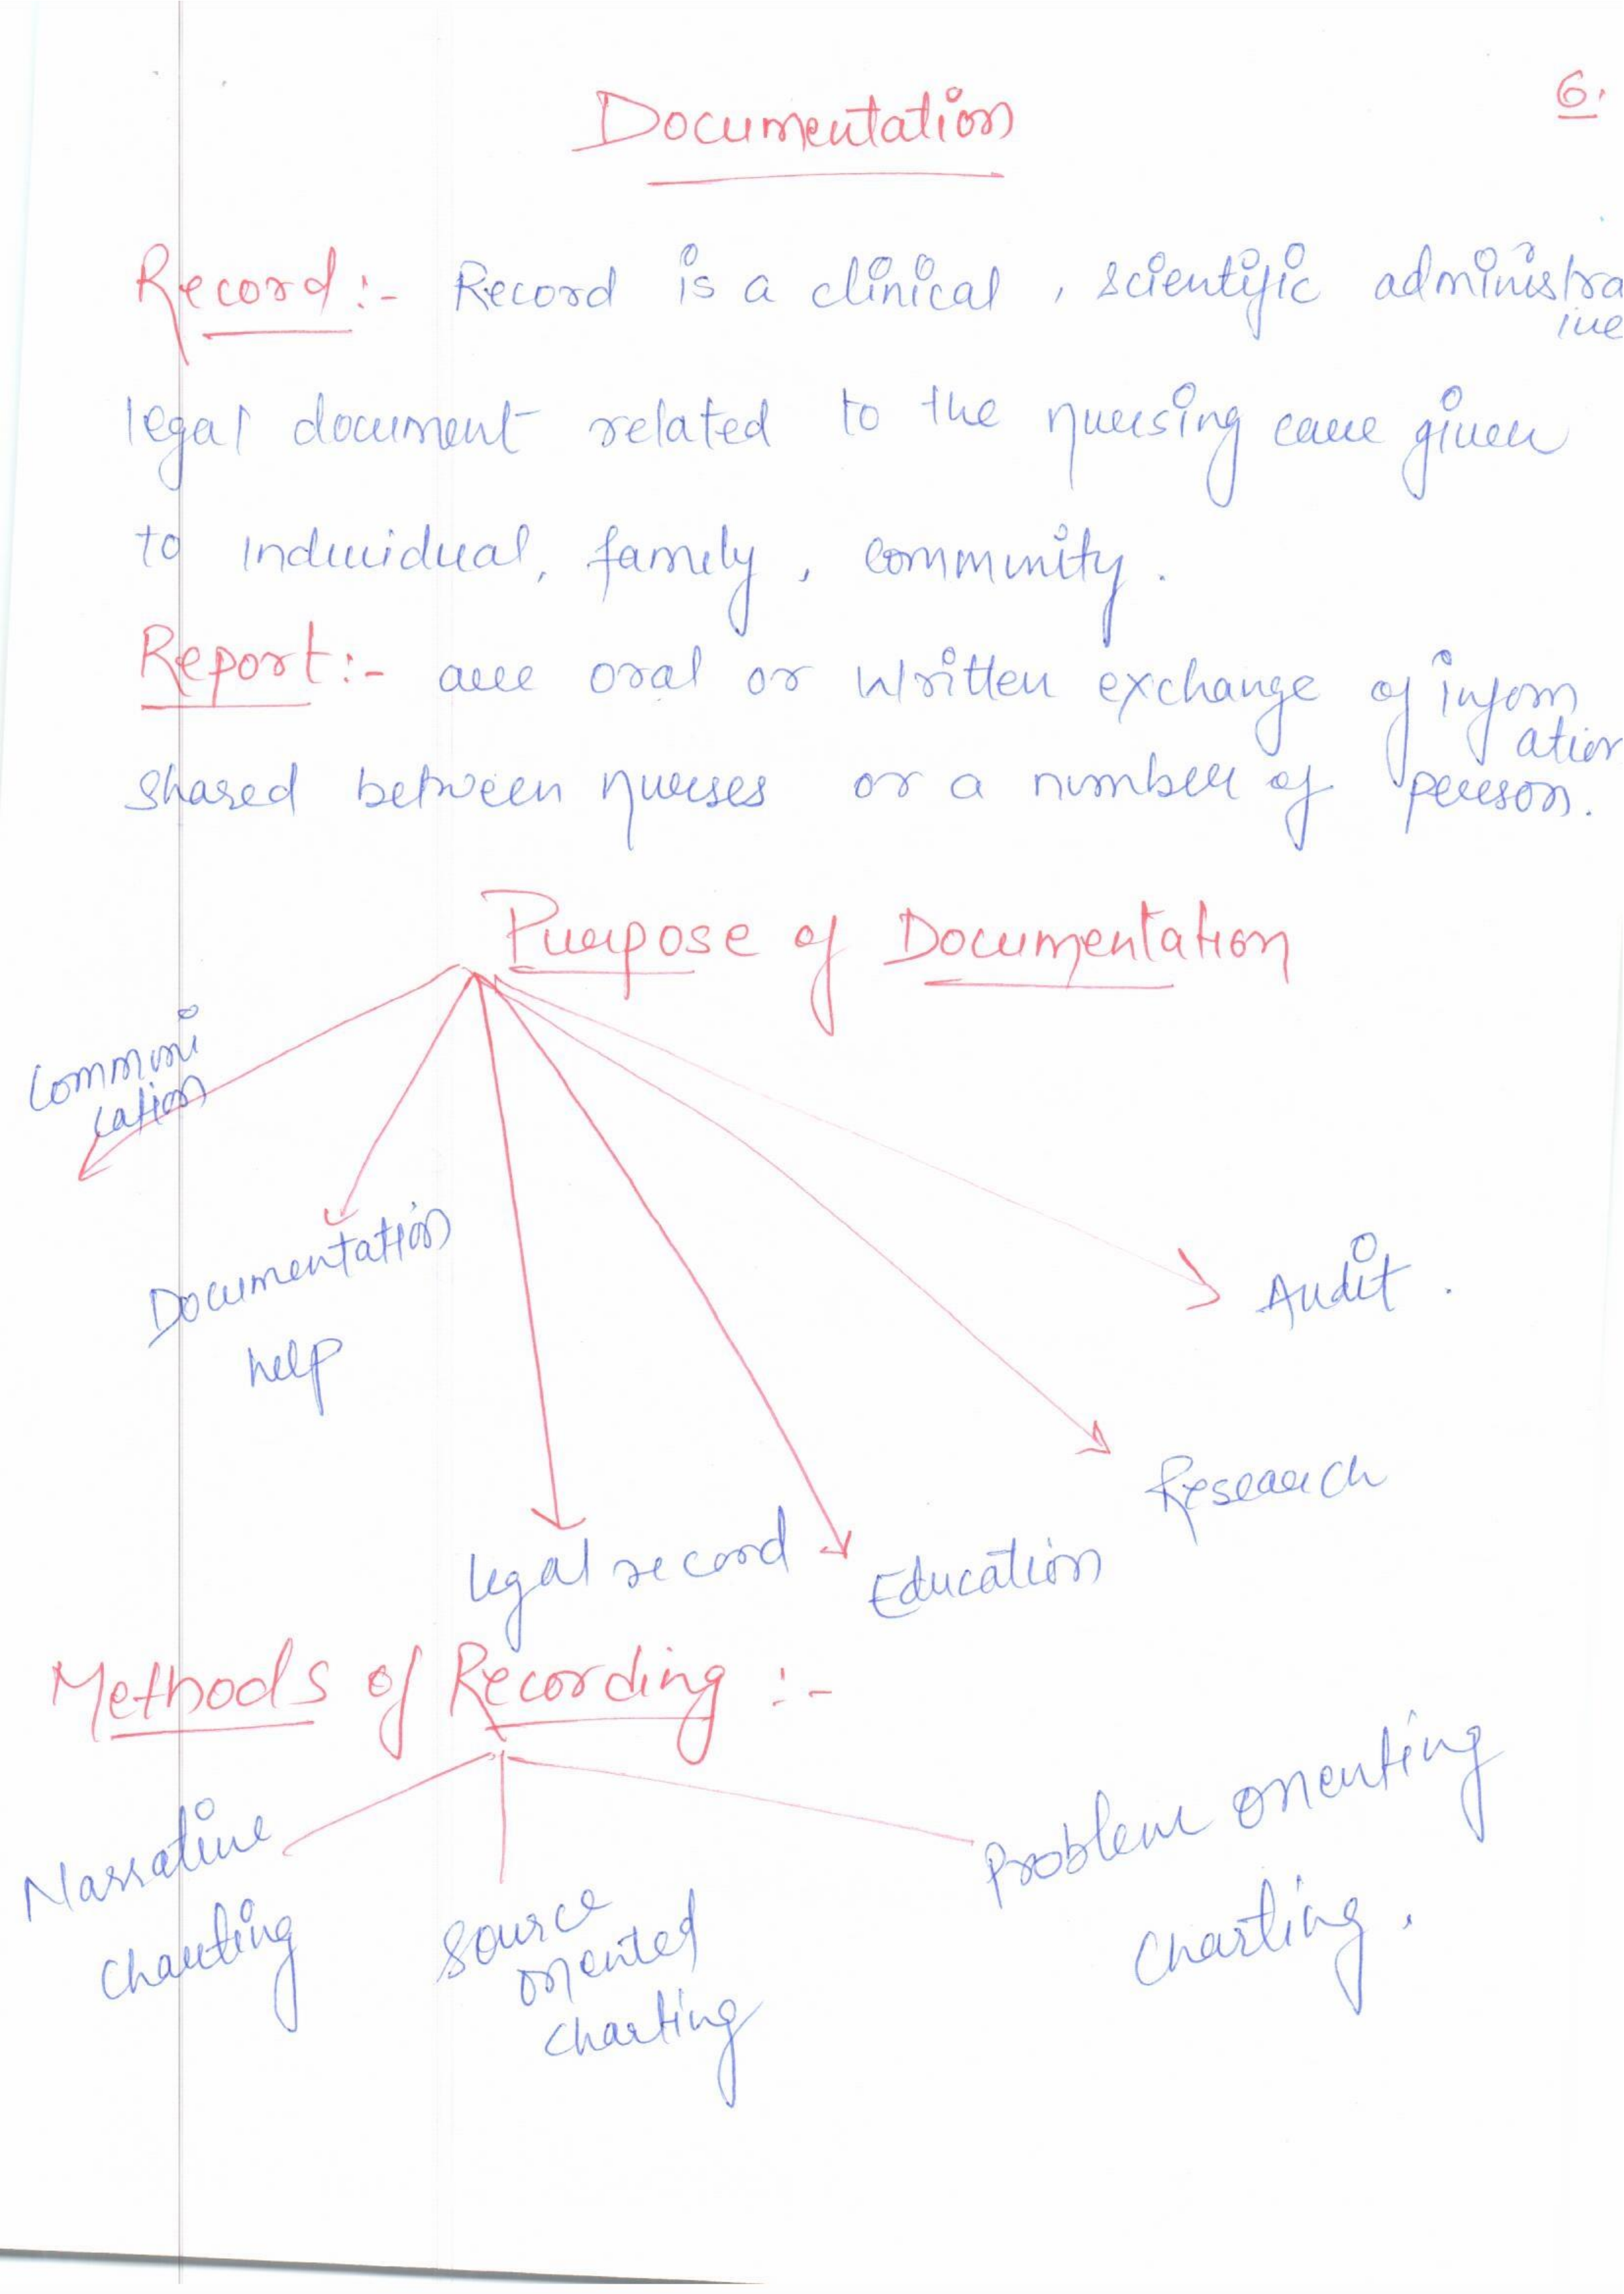 6.
Documentation
Record :- Record is a clinical, scientific administra
ive
legal document related to the nursing care given
to Individual, family, community.
Report :- are oral or written exchange of inform
ation
shared between nurses or a number of person.
Purpose of Documentation
Communi
cation
Documentation
help
Audit.
Research
legal record
Education
Methods of Recording :-
Narrative
charting
Source
oriented
charting
Problem orienting
charting.